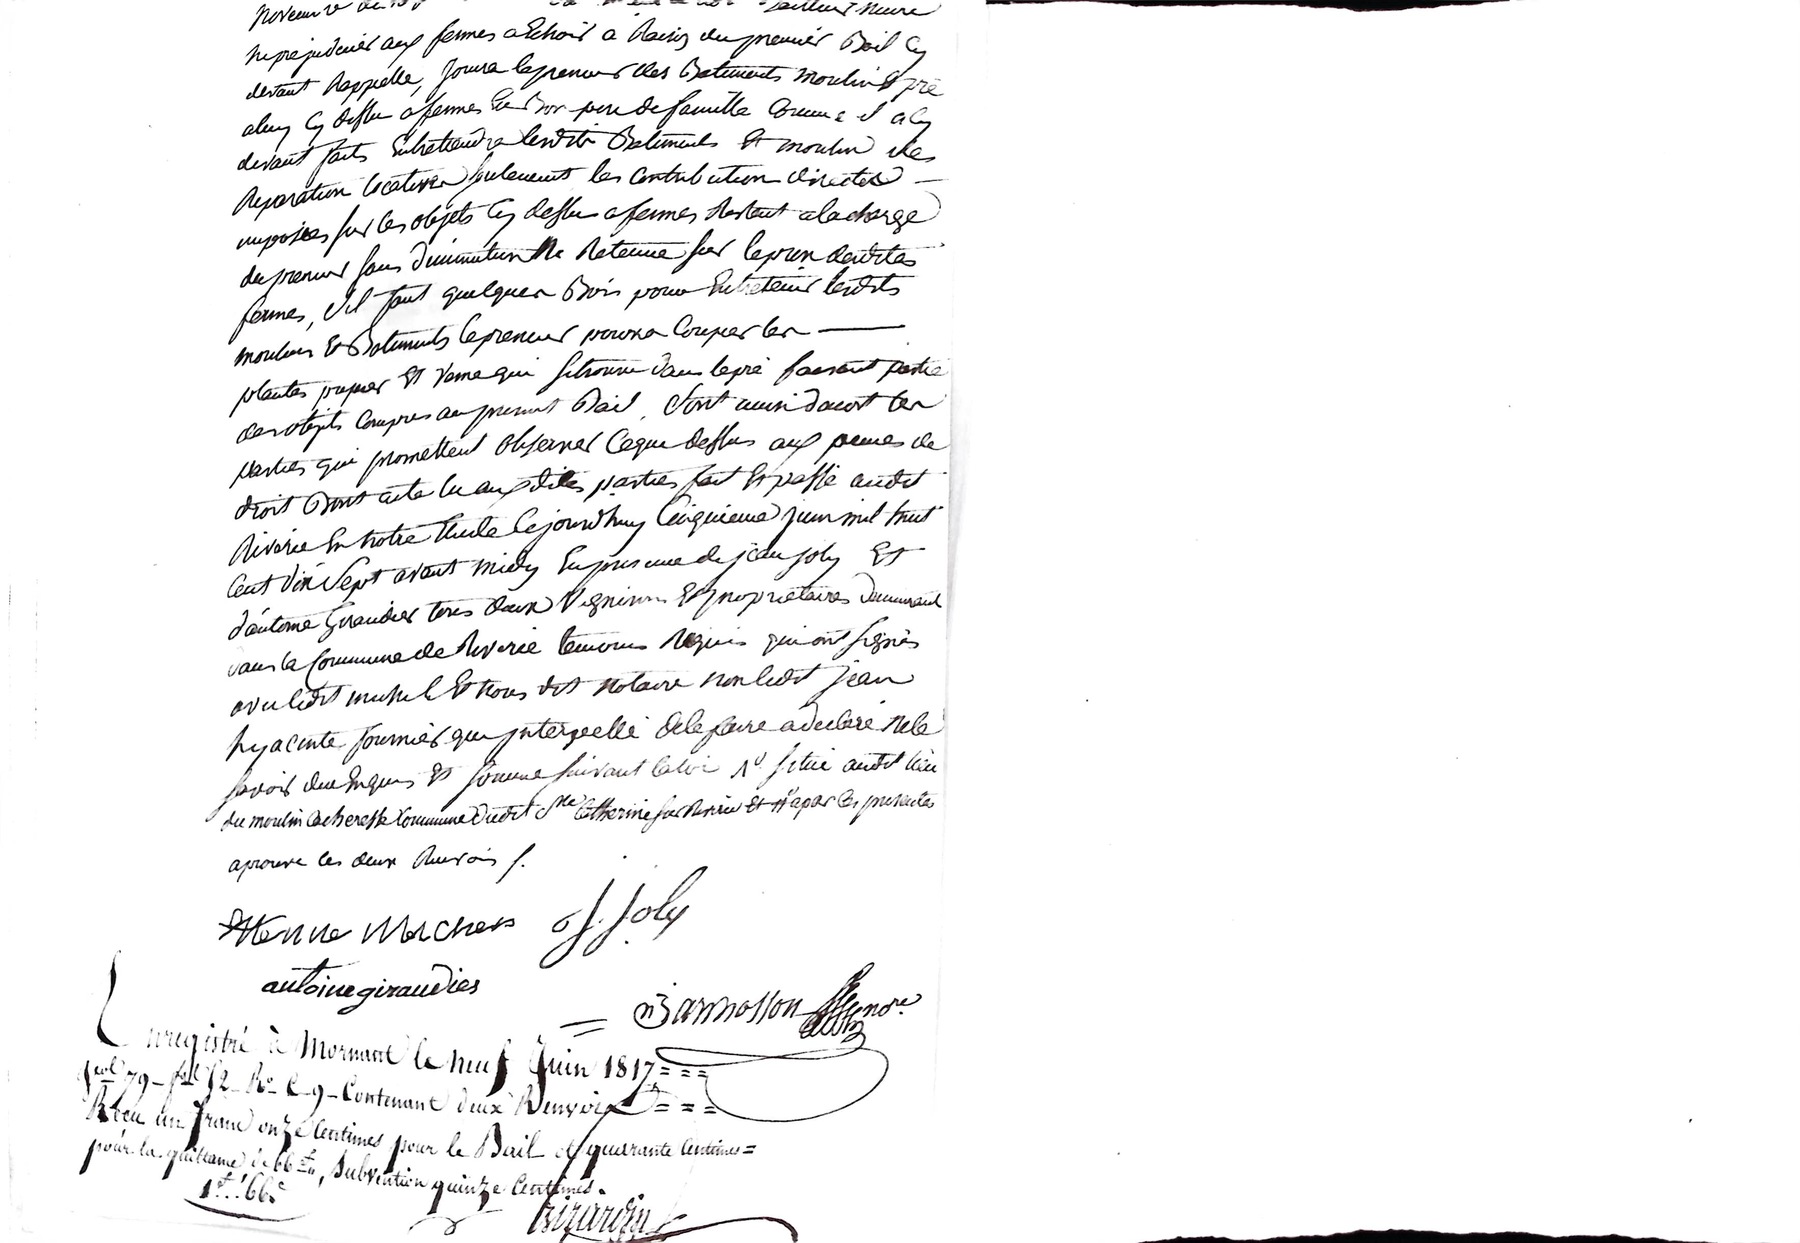 ny prejudicier aux fermes a Echoir a Raison du premier Bail Cy
devant Rappellé, Jouira lepreneur des Batiments moulin Et pré
Cy dessu affermes En Bon pere de famille Comme il a Cy
devant fait, Entretiendra lesdits Batiments Et moulin des
Reparation locative seulement les contribution directes
imposées sur les objets Cy dessu affermes Restent a la charge
du preneur sans diminution Ne Retenue sur leprix desdites
fermes, S'il faut quelques Bois pour Entretenir lesdits
moulins Et Batiments lepreneur pourra Couper les
plantes pupier Et verne qui se trouve dans lepré faisant partie
des objets Compres au present Bail. Sont ainsi dacort les
parties qui promettent observer Ceque dessus aux peines de
droit Dont acte lu auxdites parties fait Et passé audit
Riverie En notre Etude Cejourdhuy Cinquieme juin mil huit
Cent dix Sept avant midy En presence de jean joly Et
d'antoine Giraudier tous deux Vignerons Et proprietaires demeurant
dans la Commune de Riverie temoins Requis qui ont signés
avec ledit michel Et nous dit notaire non ledit jean
hyacinte fournier que interpellé dele faire a declaré nele
savoir due Enquis Et sommé suivant la loi 1º situé audit lieu
du moulin Commune dudit Ste Catherine sur Riverie Et 2º par les presentes
aprouvé les deux Renvois ./.
Etienne Micher J. Joly
antoine giraudier
Barmosson nore.
Enregistré à Mornant le neuf Juin 1817,===
vol 79 - fol 52 - Ro C. 9 - Contenant deux Renvois ===
Reçu un franc onze Centimes pour le Bail et quarante Centimes=
pour la quittance de 66 f, Subvention quinze Centimes.
1f. 66c
Girardin